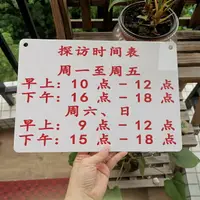 探访时间表
周一至周五
早上: 10 点 - 12 点
下午: 16 点 - 18 点
周六、日
早上: 9 点 - 12 点
下午: 15 点 - 18 点